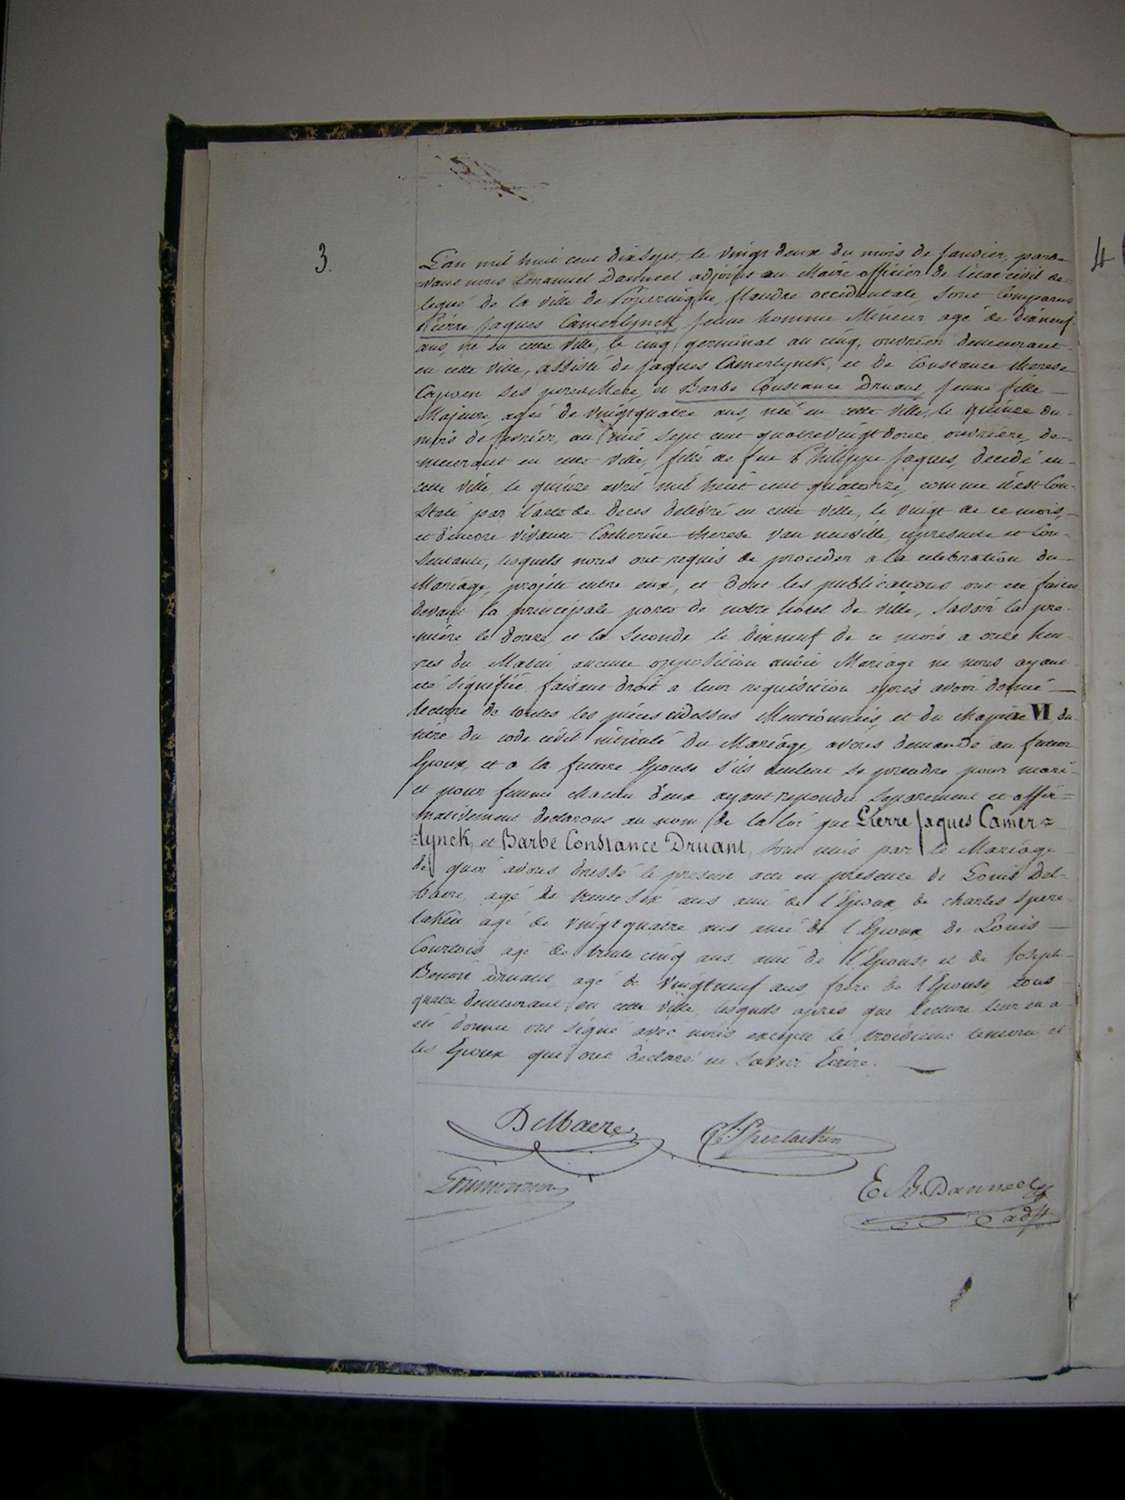 3.
4
L'an mil huit cent dix sept, le vingt deux du mois de Janvier, parde-
vant nous Emanuel Danneel adjoint au Maire officier de l'état civil de-
legué de la ville de Poperinghe, flandre occidentale, sont comparus
Pierre Jaques Camerlynck, jeune homme Mineur agé de dixneuf
ans, né en cette ville, le cinq germinal an cinq, ouvrier demeurant
en cette ville, assisté de Jaques Camerlynck, et de Constance therese
Capoen ses pere & Mere, et Barbe Constance Druant, jeune fille
Majeure, agée de vingt quatre ans, née en cette ville, le quinze du
mois de fevrier, an mil sept cent quatrevingt douze, ouvrière, de-
meurant en cette ville, fille de feu Philippe Jaques, decedé en
cette ville, le quinze avril mil huit cent quatorze, comme il est Con-
staté par l'acte de deces delivré en cette ville, le vingt de ce mois,
et d'encore vivante Catherine therese Van neuville, cipresente et Con-
sentante, lesquels nous ont requis de proceder a la celebration du
Mariage, projetté entre eux, et dont les publications ont eté faites
devant la principale porte de notre hôtel de ville, savoir la pre-
mière le douze, et la seconde le dixneuf de ce mois a onze heu-
res du Matin, aucune opposition audit Mariage ne nous ayant
eté signifiée, faisant droit a leur requisition, après avoir donné
lecture de toutes les pièces cidessus Mentionnées, et du chapitre VI du
titre du code civil intitulé du Mariage, avons demandé au futur
Epoux, et a la future Epouse s'ils veulent se prendre pour mari
et pour femme chacun d'eux ayant repondu separement et affir-
mativement declarons au nom de la loi que Pierre Jaques Camer=
lynck, et Barbe Constance Druant, sont unis par le Mariage
de quoi avons dressé le present acte en presence de Louis Del-
baere, agé de trente six ans ami de l'Epoux, de charles Sper-
laken agé de vingt quatre ans ami de l'Epoux de Louis
Courtois agé de trente cinq ans, ami de l'Epouse et de Joseph
Benoit Druant, agé de vingtneuf ans, frère de l'Epouse, tous
quatre demeurant en cette ville, lesquels après que lecture leur en a
eté donnée ont signé avec nous excepté le troisieme temoin et
les Epoux qui ont declaré ne savoir Ecrire.
Delbaere
Ch. Sperlaeken
E. Danneel
adjt